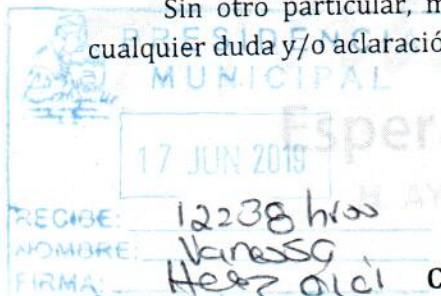 Sin otro particular, m
cualquier duda y/o aclaració
PRESIDENCIA
MUNICIPAL
Esper
17 JUN 2019
H. AY
RECIBE: 12:38 hrs
NOMBRE: Vanessa
FIRMA:
C